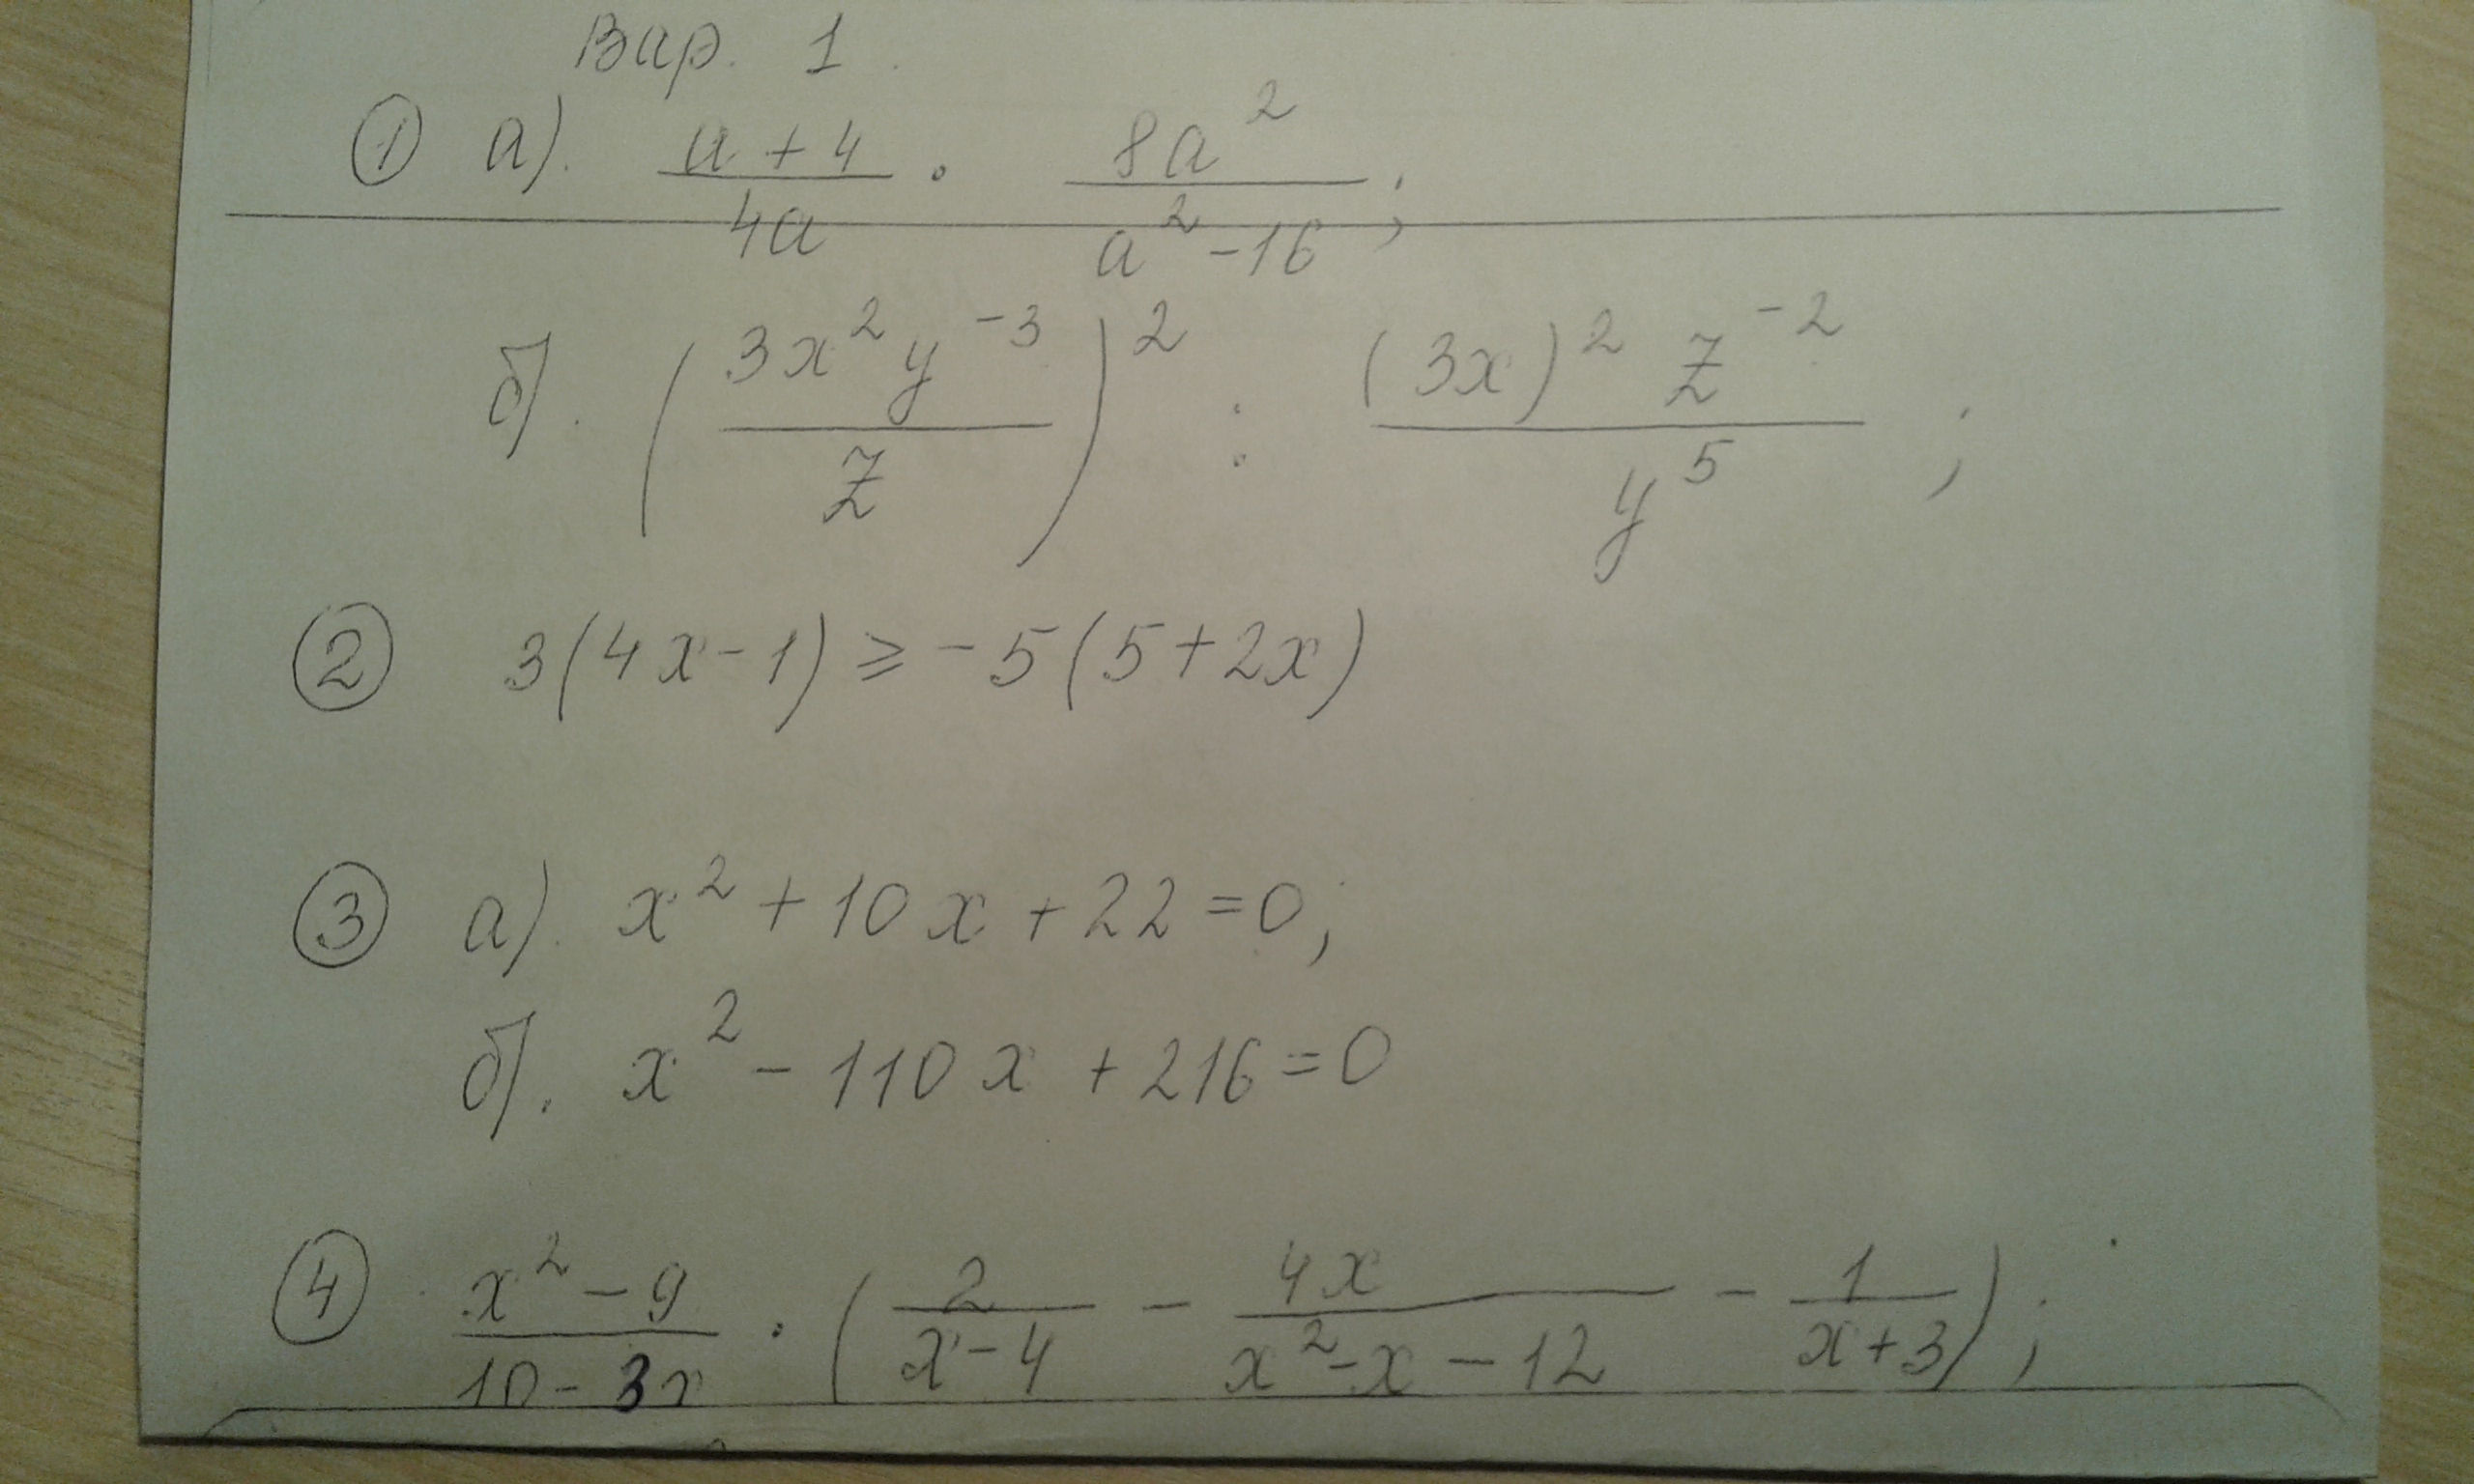 Вар. 1.
① а). (a + 4)/(4a) · (8a²)/(a² - 16);
б). ((3x²y⁻³)/z)² : ((3x)² z⁻²)/(y⁵);
② 3(4x - 1) ⩾ -5(5 + 2x)
③ а). x² + 10x + 22 = 0;
б). x² - 110x + 216 = 0
④ (x² - 9)/(10 - 3x) · (2/(x - 4) - (4x)/(x² - x - 12) - 1/(x + 3));